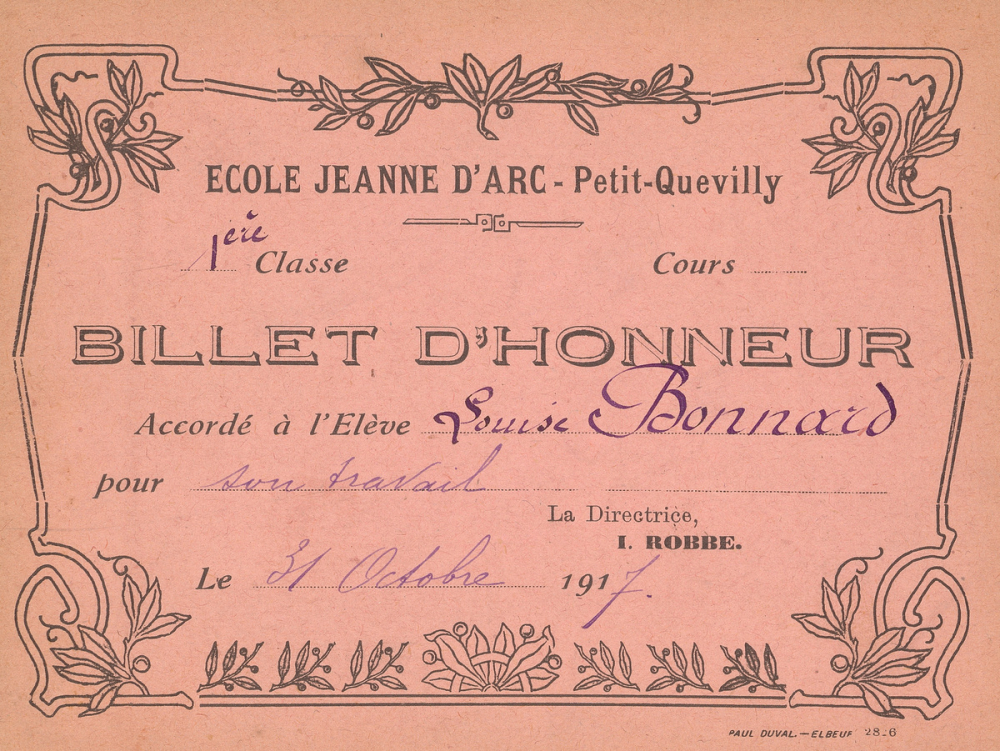 ECOLE JEANNE D'ARC - Petit-Quevilly
1ère Classe Cours
BILLET D'HONNEUR
Accordé à l'Elève Louise Bonnard
pour son travail
La Directrice,
I. ROBBE.
Le 31 Octobre 1917.
PAUL DUVAL.—ELBEUF 28-6